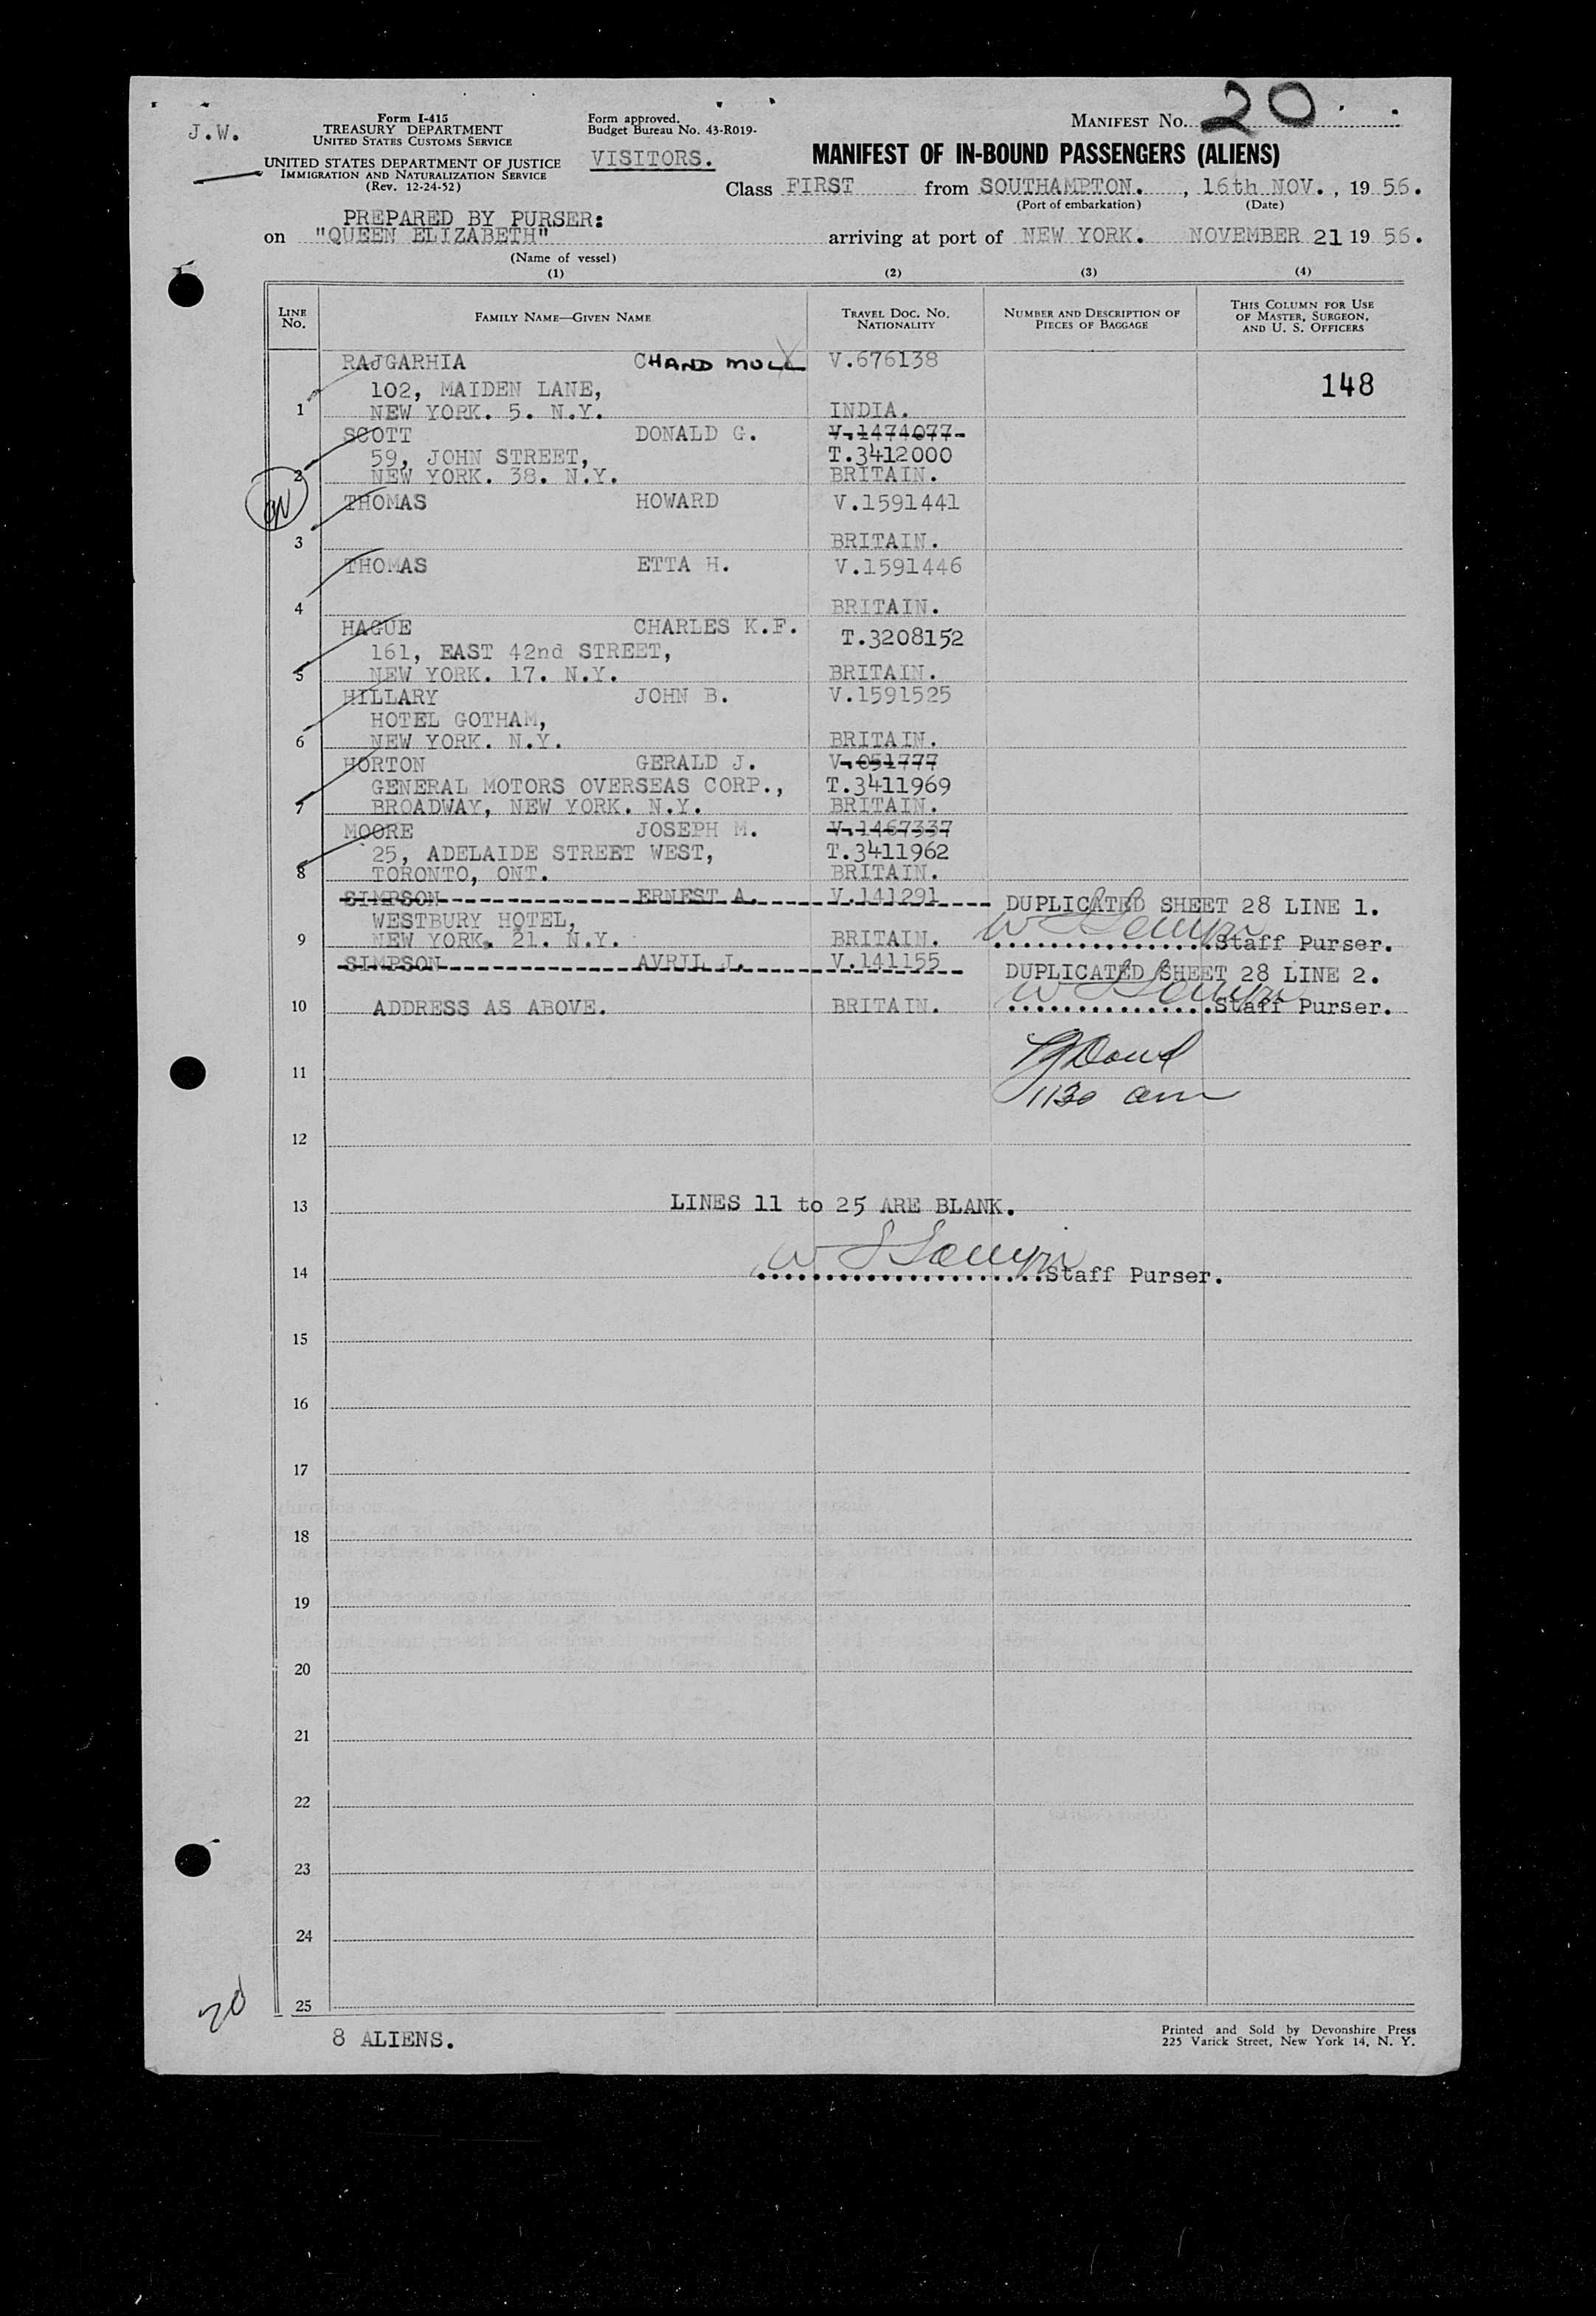 J.W.
Form I-415
TREASURY DEPARTMENT
UNITED STATES CUSTOMS SERVICE
UNITED STATES DEPARTMENT OF JUSTICE
IMMIGRATION AND NATURALIZATION SERVICE
(Rev. 12-24-52)
Form approved.
Budget Bureau No. 43-R019-
VISITORS.
MANIFEST NO. 20
MANIFEST OF IN-BOUND PASSENGERS (ALIENS)
Class FIRST from SOUTHAMPTON. , 16th NOV. , 19 56.
(Port of embarkation) (Date)
PREPARED BY PURSER:
on "QUEEN ELIZABETH" arriving at port of NEW YORK. NOVEMBER 21 19 56.
(Name of vessel)
(1) (2) (3) (4)
LINE NO. FAMILY NAME—GIVEN NAME TRAVEL DOC. NO. NATIONALITY NUMBER AND DESCRIPTION OF PIECES OF BAGGAGE THIS COLUMN FOR USE OF MASTER, SURGEON, AND U. S. OFFICERS
RAJGARHIA CHAND MOLL V.676138
102, MAIDEN LANE, 148
1 NEW YORK. 5. N.Y. INDIA.
SCOTT DONALD G. V.1474077-
59, JOHN STREET, T.3412000
2 NEW YORK. 38. N.Y. BRITAIN.
THOMAS HOWARD V.1591441
3 BRITAIN.
THOMAS ETTA H. V.1591446
4 BRITAIN.
HAGUE CHARLES K.F. T.3208152
161, EAST 42nd STREET,
5 NEW YORK. 17. N.Y. BRITAIN.
HILLARY JOHN B. V.1591525
HOTEL GOTHAM,
6 NEW YORK. N.Y. BRITAIN.
HORTON GERALD J. V.051777
GENERAL MOTORS OVERSEAS CORP., T.3411969
7 BROADWAY, NEW YORK. N.Y. BRITAIN.
MOORE JOSEPH M. V.1467337
25, ADELAIDE STREET WEST, T.3411962
8 TORONTO, ONT. BRITAIN.
SIMPSON ERNEST A. V.141291 DUPLICATED SHEET 28 LINE 1.
WESTBURY HOTEL,
9 NEW YORK. 21. N.Y. BRITAIN. Staff Purser.
SIMPSON AVRIL I. V.141155 DUPLICATED SHEET 28 LINE 2.
10 ADDRESS AS ABOVE. BRITAIN. Staff Purser.
11
1130 am
12
13 LINES 11 to 25 ARE BLANK.
14 Staff Purser.
15
16
17
18
19
20
21
22
23
24
25
20
8 ALIENS.
Printed and Sold by Devonshire Press
225 Varick Street, New York 14, N. Y.